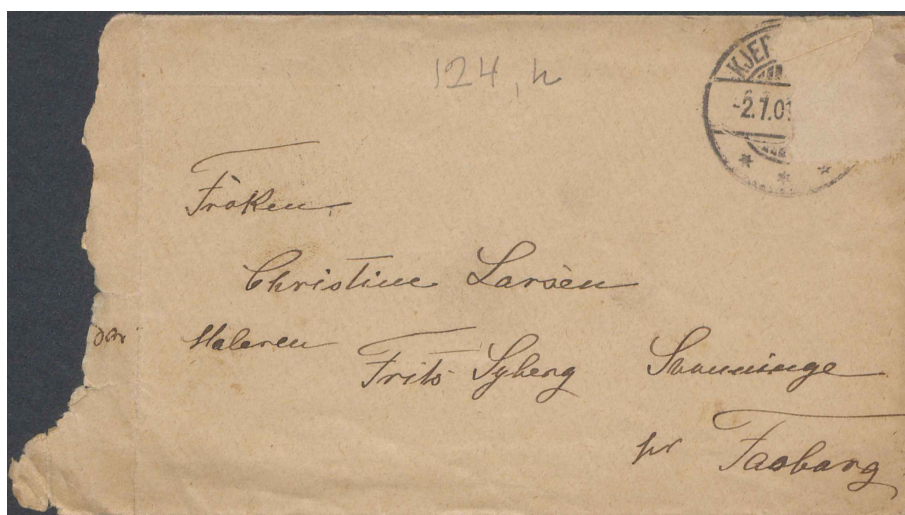 124, h
KJER
-2.7.01
Frøken
Christine Larsen
Maleren Frits Syberg Svanninge
pr Faaborg